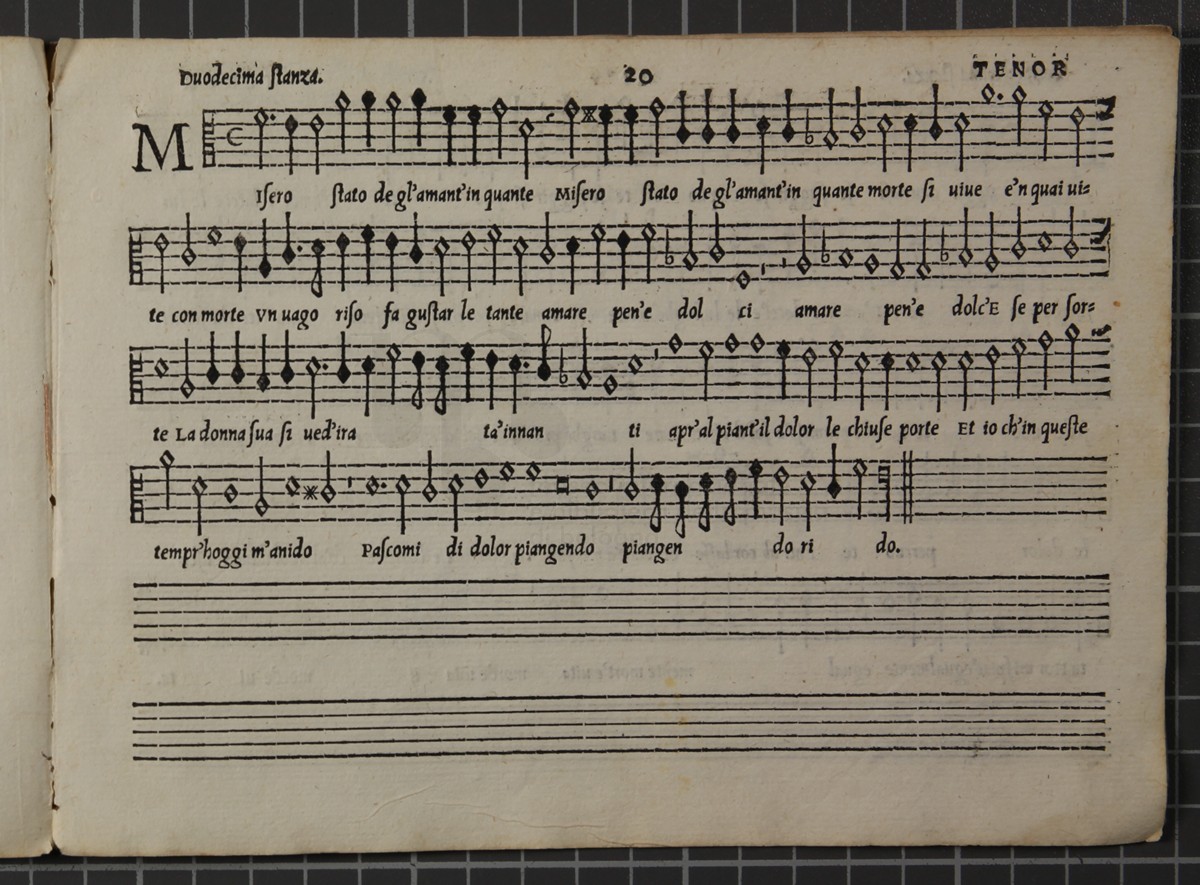 Duodecima ſtanza. 20 TENOR
MIſero ſtato de gl'amant'in quante Miſero ſtato de gl'amant'in quante morte ſi uiue e'n quai ui=
te con morte Vn uago riſo fa guſtar le tante amare pen'e dol ci amare pen'e dolc'E ſe per ſor=
te La donna ſua ſi ued'ira ta'innan ti apr'al piant'il dolor le chiuſe porte Et io ch'in queſte
tempr'hoggi m'anido Paſcomi di dolor piangendo piangen do ri do.